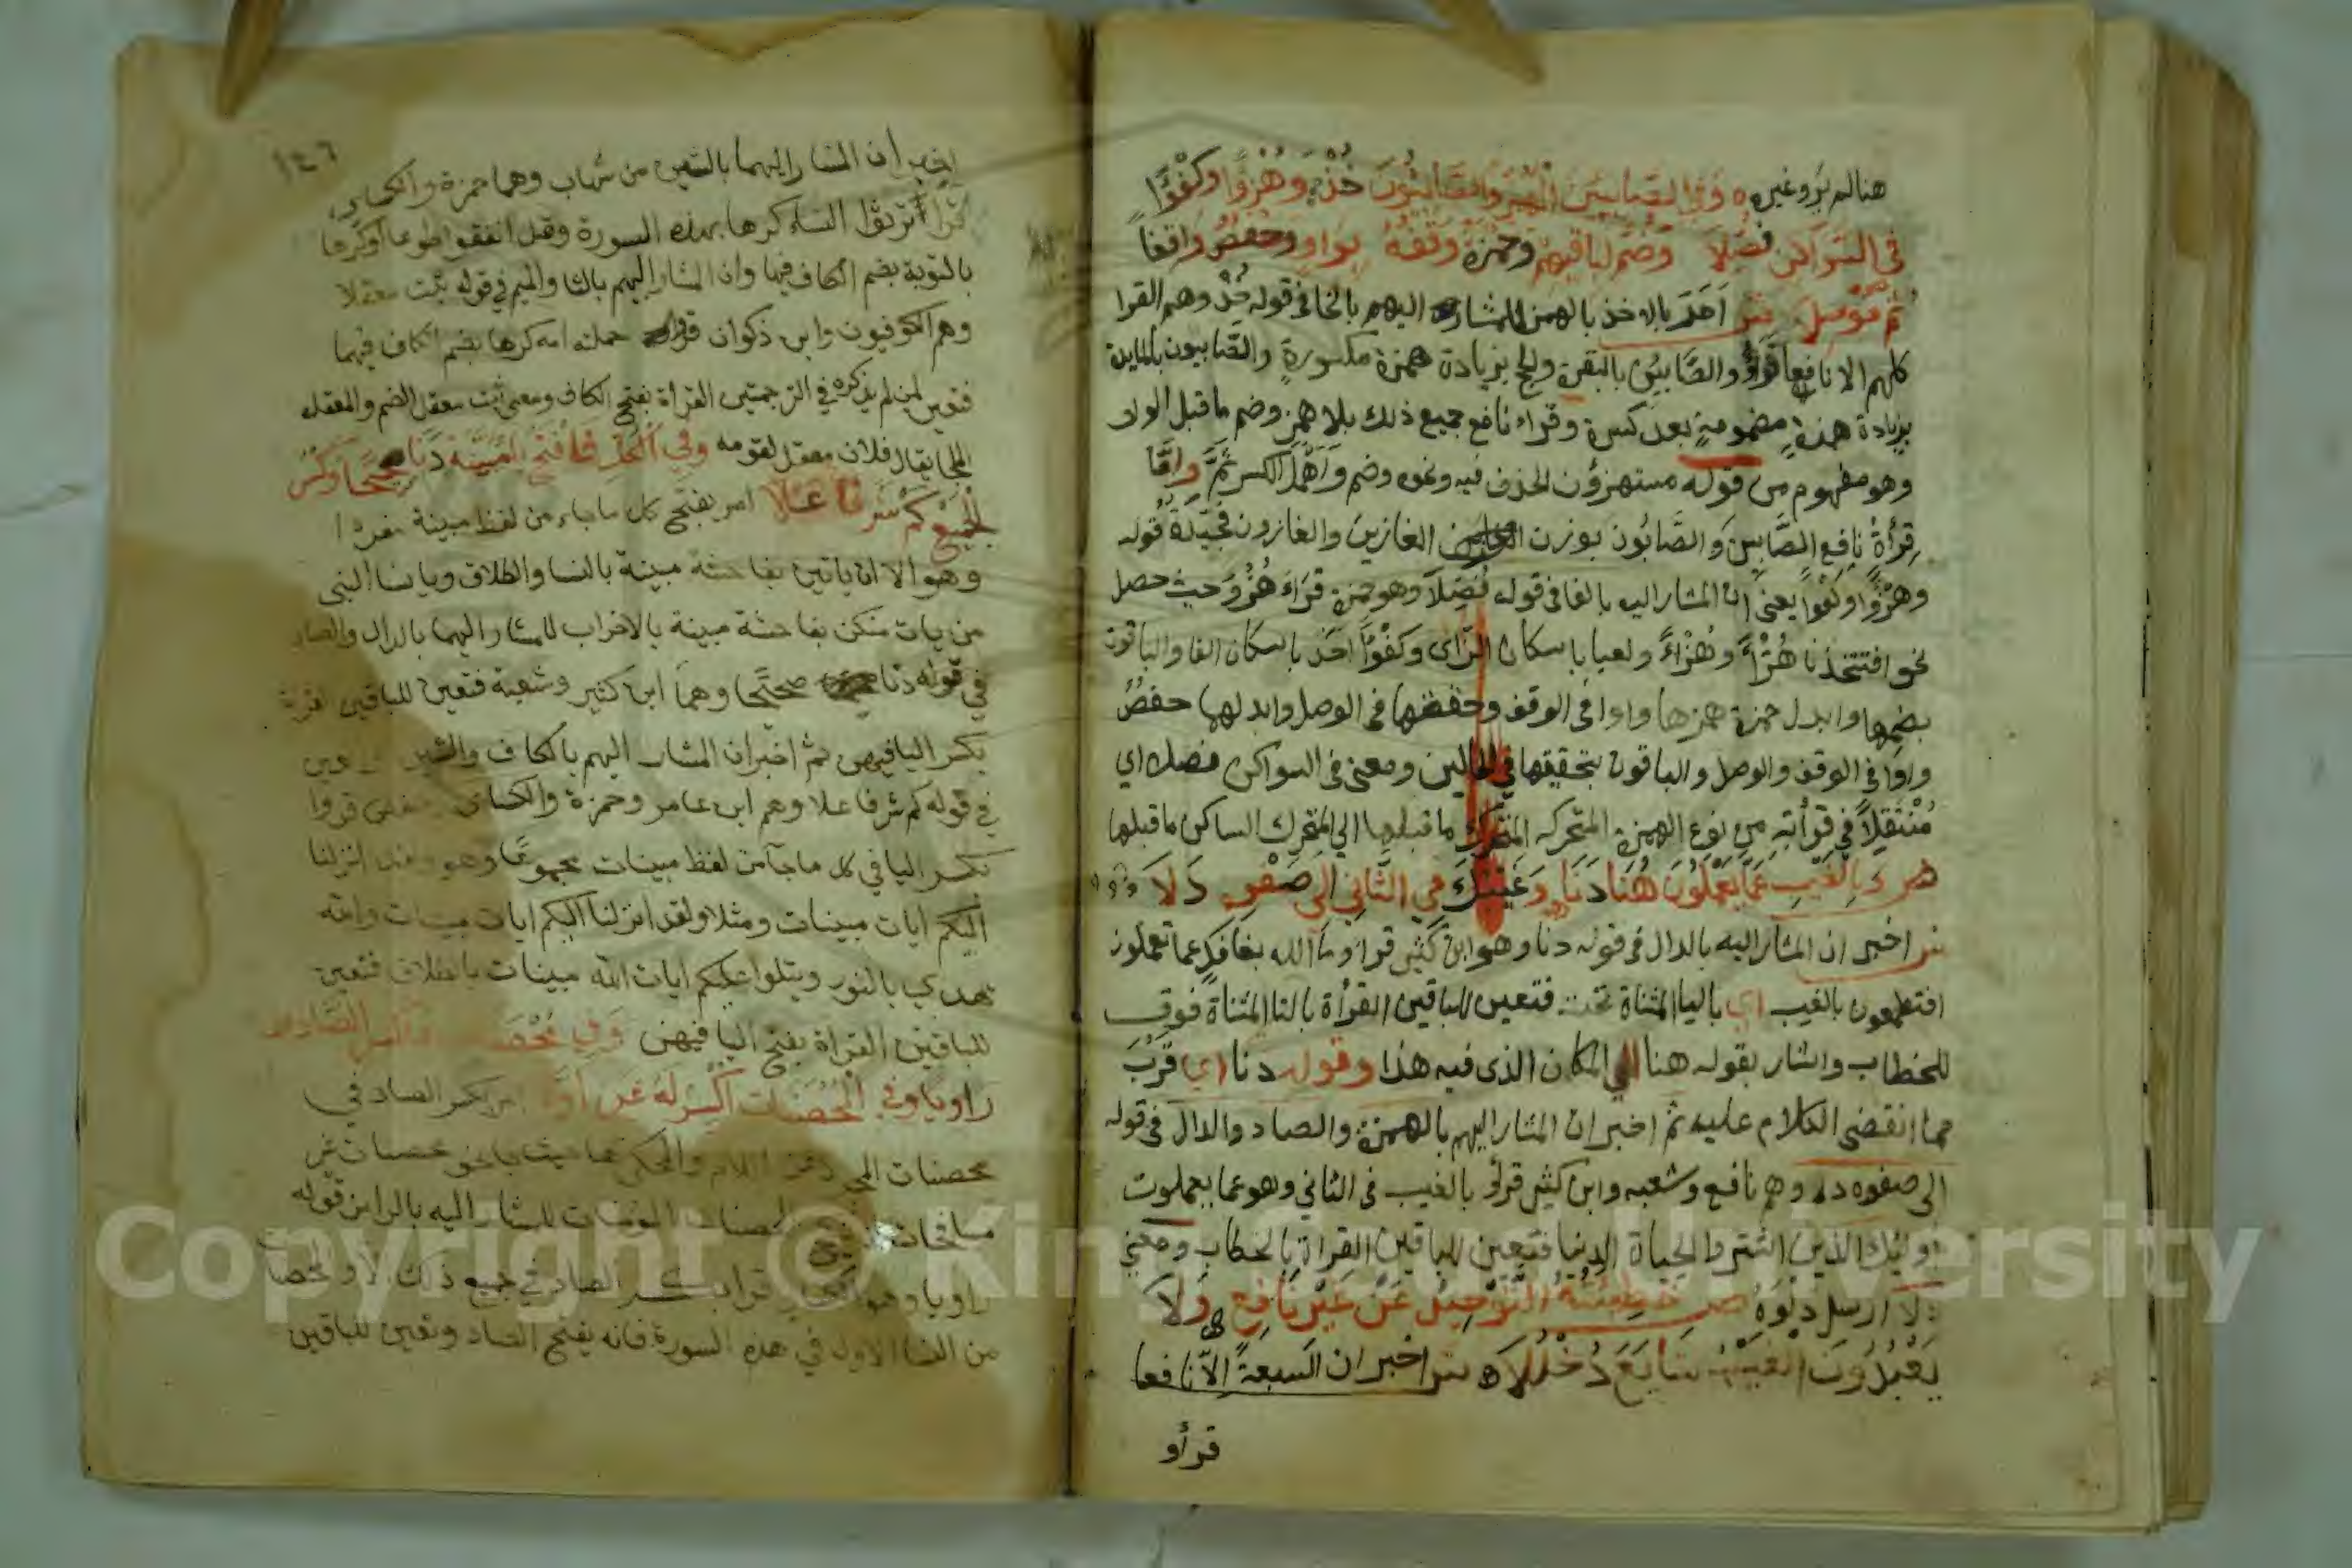 هنا لم يرو غيره ه وفي الصابئين الهمز والصابئون خذ وهزؤا وكفؤا
في السواكن فصلا وضم لباقيهم وحمزة وقفه بواو وحفص واقفا
ثم موصلا اخذ بالاخذ بالهمز للمشار اليهم بالخا في قوله خذ وهم القرا
كلهم الا نافعا قرؤا والصابئين بالبقرة والحج بزيادة همزة مكسورة والصابيون بالمايدة
بزيادة همزة مضمومة بعد كسرة وقراء نافع جميع ذلك بلا همز وضم ما قبل الواو
وهو مفهوم من قوله مستهزؤن الحذف فيه ونحوه وضم واهمل الكسر ثم واما
قرأة نافع الصابين والصابون بوزن الغازين والغازون قوله
وهزؤا وكفؤا يعني ان المشار اليه بالفا في قوله فصلا وهو حمزة قراء هزؤ حيث حصل
نحو افتتخذنا هزأ وهزاء ولعبا باسكان الزاي وكفؤا احد باسكان الفا والباقون
بضمها وابدل حمزة همزها واوا في الوقف وحققها في الوصل وابدلها حفص
واوا في الوقف والوصل والباقون بتحقيقها في الحالين ومعنى في السواكن فصلا اي
منتقلا في قرأته من نوع الهمزة المتحركه المتحرك ما قبلها الي المتحرك الساكن ما قبلها
ص وبالغيب عما يعملون هنا دنا وغيبك في الثاني الى صفوه دلا
ش اخبر ان المشار اليه بالدال في قوله دنا وهو ابن كثير قراء وما الله بغافل عما تعملون
افتطمعون بالغيب اي باليا المثناة تحت فتعين للباقين القرأة بالتا المثناة فوق
للخطاب واشار بقوله هنا الي المكان الذي فيه هذا وقوله دنا اي قرب
مما انقضى الكلام عليه ثم اخبر ان المشار اليهم بالهمزة والصاد والدال في قوله
الى صفوه دلا وهم نافع وشعبه وابن كثير قرأو بالغيب في الثاني وهو عما يعملون
اوليك الذين اشتروا الحياة الدنيا فتعين للباقين القراة بالخطاب ومعنى
دلا ارسل دلوه ص خطيئته التوحيد عن غير نافع ولا
يعبدون الغيب شايع دخللا ه ش اخبر ان السبعة الا نافعا
قرأو
١٤٦
اخبر ان المشار اليهما بالشين من شهاب وهما حمزة والكساي
قرأ ان ترثوا النساء كرها بهذه السورة وقل انفقوا طوعا او كرها
بالتوبة بضم الكاف فيها وان المشار اليهم بالثا والميم في قوله ثبت معقلا
وهم الكوفيون وابن ذكوان قراو حملته امه كرها بضم الكاف فيهما
فتعين لمن لم يذكره في الترجمتين القراة بفتح الكاف ومعنى ثبت معقل الضم والمعقل
الملجا يقال فلان معقل لقومه وفي الكل فافتح يا مبينة دنا صحيحا وكسر
الجمع كم شرفا علا امر بفتح كل ما جاء من لفظ مبينة مفردا
وهو الا ان ياتين بفاحشة مبينة بالنسا والطلاق ويا نسا النبي
من يات منكن بفاحشة مبينة بالاحزاب للمشار اليهما بالدال والصاد
في قوله دنا صحيحا وهما ابن كثير وشعبة فتعين للباقين القراة
بكسر اليا فيهن ثم اخبر ان المشار اليهم بالكاف والشين والعين
في قوله كم شرفا علا وهم ابن عامر وحمزة والكساي وحفص قروا
بكسر اليا في كل ما جآ من لفظ مبينات مجموعا وهو ولقد انزلنا
اليكم ايات مبينات ومثلا ولقد انزلنا اليكم ايات مبينات والله
يهدي بالنور ويتلوا عليكم ايات الله مبينات بالطلاق فتعين
للباقين القراة بفتح اليا فيهن وفي محصنات فاكسر الصاد
راويا وفي المحصنات اكسر له غير اولا امر بكسر الصاد في
محصنات المجرد عن اللام والمحلي بها حيث جا نحو محصنات غير
مسافحات المحصنات المومنات للمشار اليه بالرا في قوله
راويا وهو الكساي قرا بكسر الصاد في جميع ذلك الا والمحصنات
من النسا الاول في هذه السورة فانه بفتح الصاد وتعين للباقين
Copyright © King Saud University